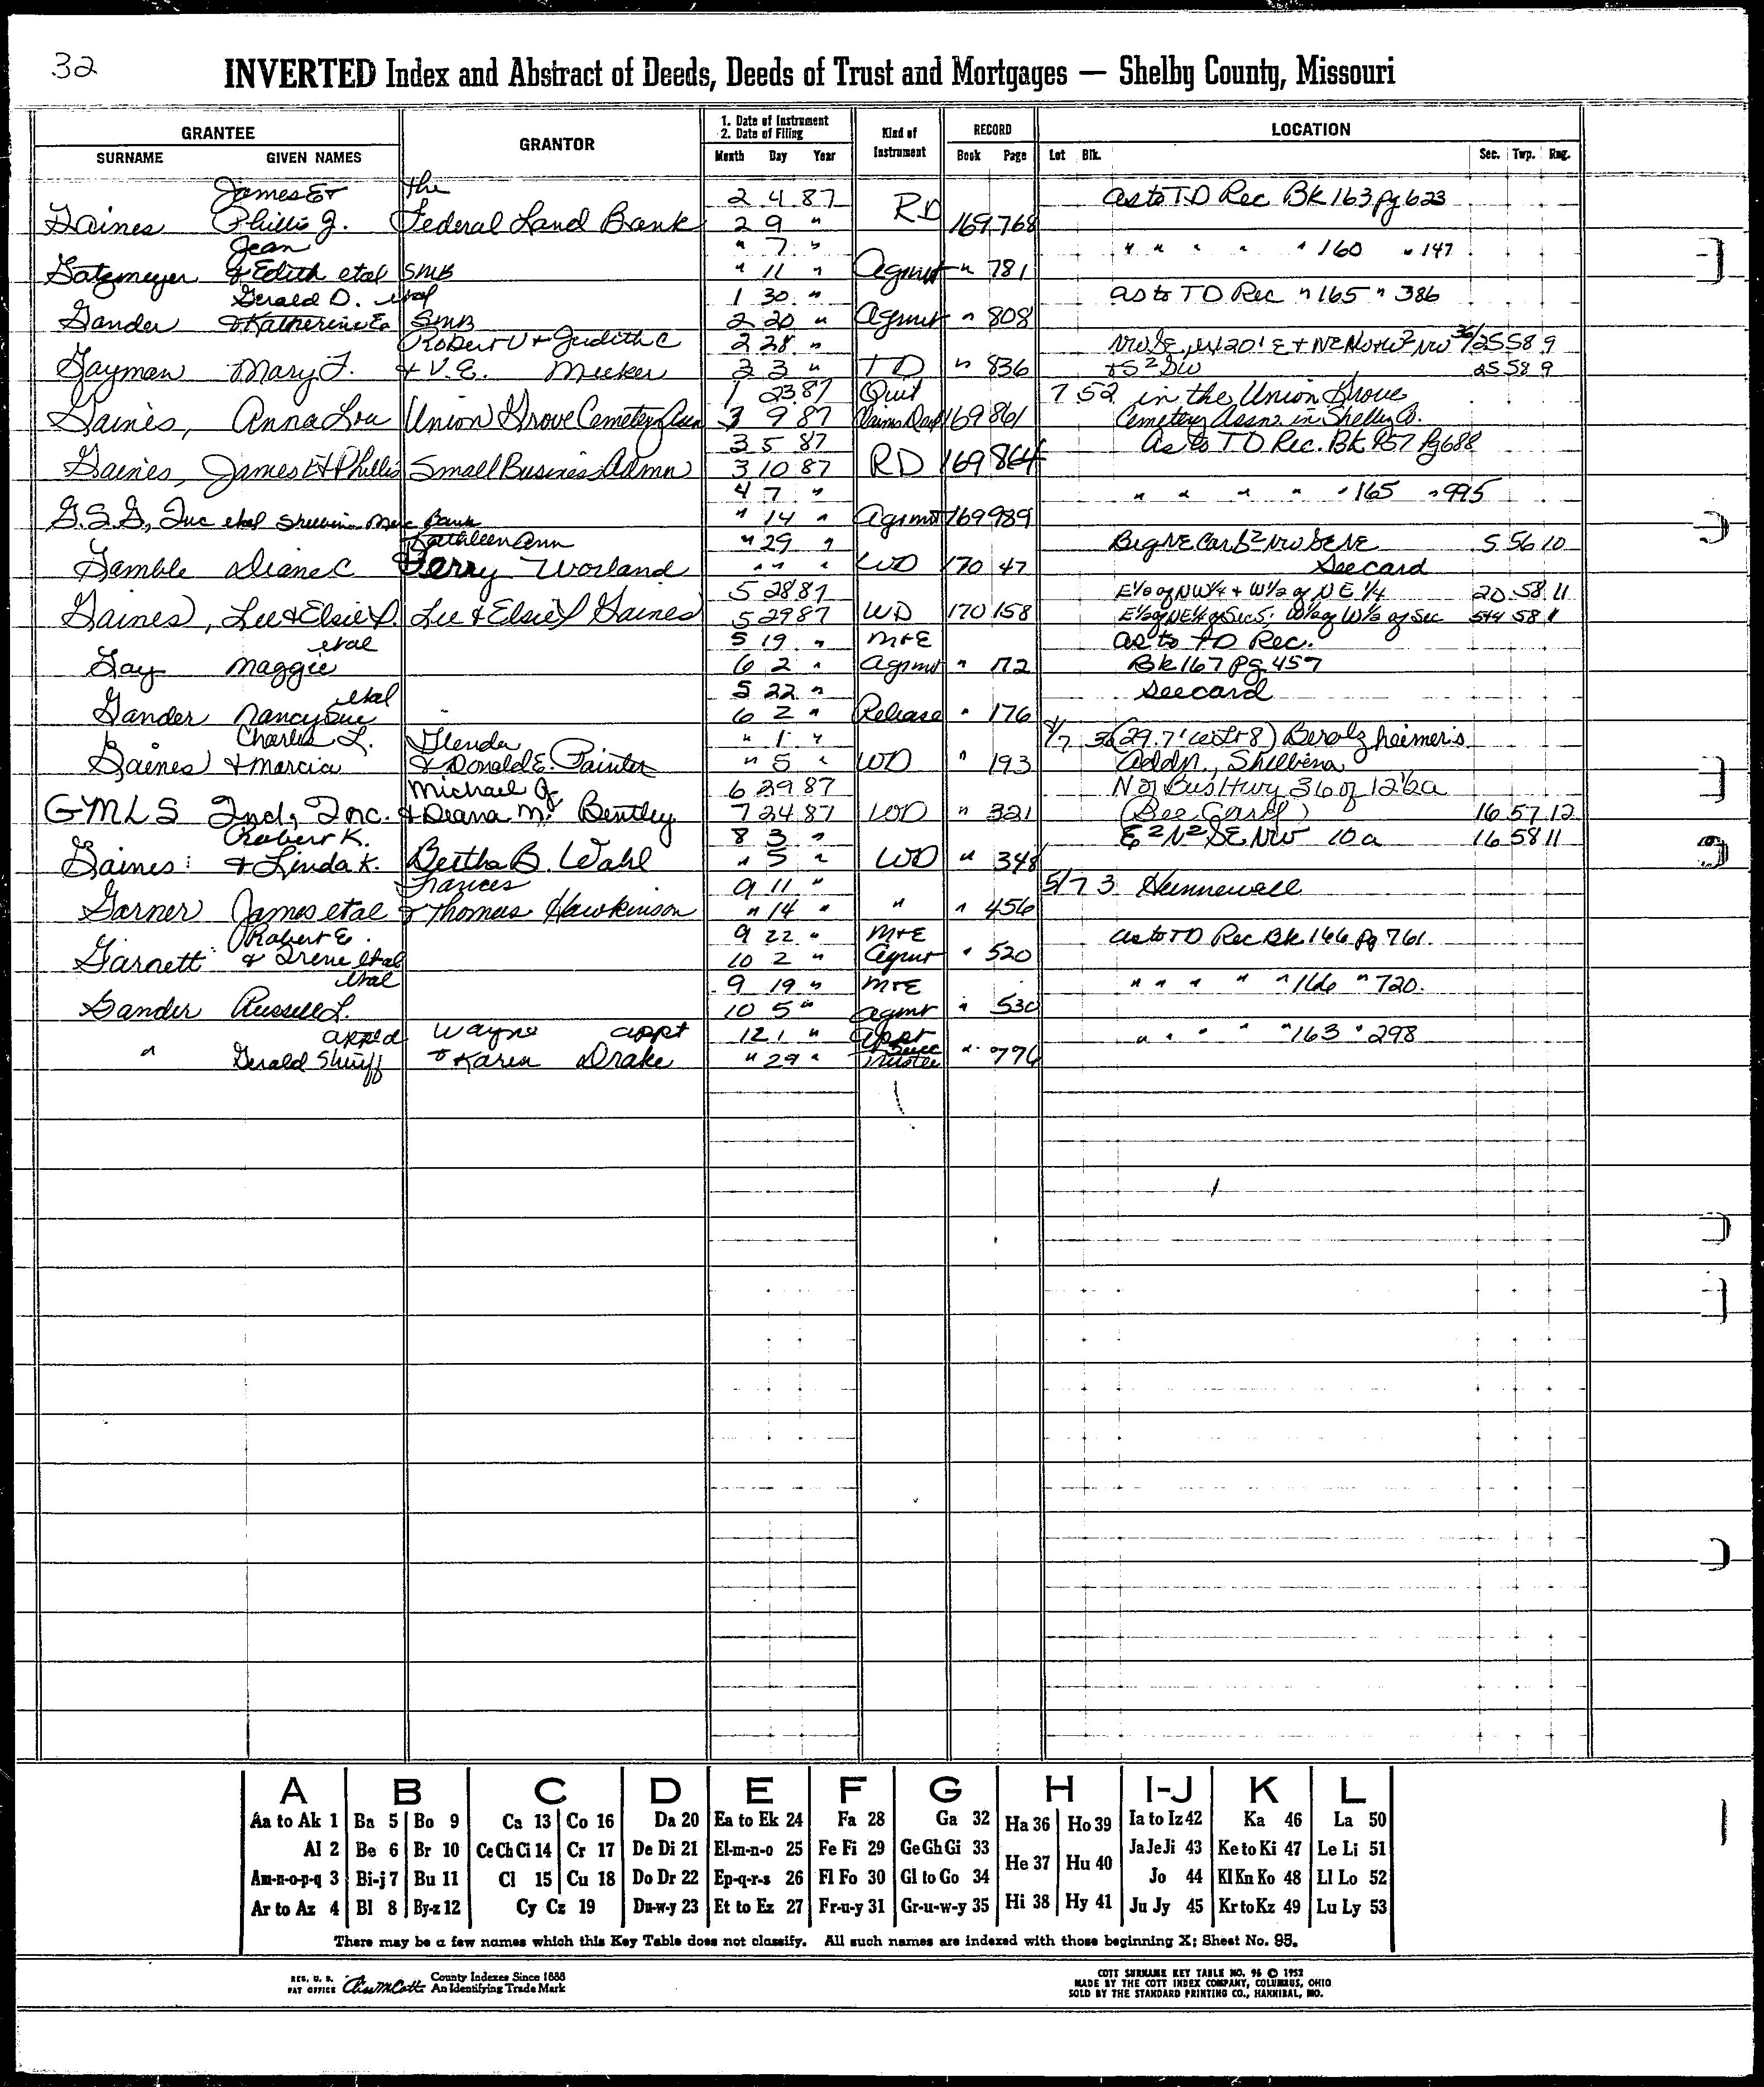 32
INVERTED Index and Abstract of Deeds, Deeds of Trust and Mortgages — Shelby County, Missouri
GRANTEE GRANTOR 1. Date of Instrument 2. Date of Filing Kind of Instrument RECORD LOCATION
SURNAME GIVEN NAMES Month Day Year Book Page Lot Blk. Sec. Twp. Rng.
James E & the 2 4 87 as to TD Rec Bk 163 pg 623
Gaines Phillis J. Federal Land Bank 2 9 " RD 169 768
Jean " 7 " " " " " " 160 " 147
Gatzmeyer & Edith etal SMB " 11 " Agmt " 781
Gerald D. etal 1 30 " as to TD Rec " 165 " 386
Gander & Katherine E SMB 2 20 " Agmt " 808
Robert V & Judith C 2 28 "
Gayman Mary F. & V.E. Meeker 3 3 " TD " 836 & S² SW 25 58 9
1 23 87 Quit 7 52 in the Union Grove
Gaines, Anna Lou Union Grove Cemetery Assn 3 9 87 Claims Deed 169 861 Cemetery Assn. in Shelby Co.
3 5 87 as to TD Rec. Bk 157 Pg 688
Gaines, James E & Phillis Small Business Admn 3 10 87 RD 169 864
4 7 " " " " " " 165 " 995
G.S.G, Inc etal Merc Bank " 14 " Agsmt 169 989
Kathleen Ann " 29 " Beg NE Cor S² NW SE NE 5 56 10
Gamble Diane C Terry Worland " " " WD 170 47 See card
5 28 87 E½ of NW¼ + W½ of NE ¼ 20 58 11
Gaines, Lee & Elsie P. Lee & Elsie P Gaines 5 29 87 WD 170 158 E½ of NE¼ of Sec 5; W½ of W½ of Sec 5+4 58 11
etal 5 19 " M+E as to TD Rec.
Gay Maggie 6 2 " Agsmt " 172 Bk 167 Pg 457
etal 5 22 " See card
Gander Nancy Sue 6 2 " Release " 176
Charles L. Glenda " 1 " 1/7 36 (29.7' Lt 8) Berolzheimer's
Gaines & Marcia & Donald E. Painter " 5 " WD " 193 Addn., Shelbina
Michael J 6 29 87 N of Bus Hwy 36 of 12½a
GMLS Ind, Inc. & Deana M. Bentley 7 24 87 WD " 321 (See Card) 16 57 12
Robert K. 8 3 " E² N² SE NW 10a 16 58 11
Gaines & Linda K. Bertha B. Wahl " 5 " WD " 348
Frances 9 11 " 5/7 3 Hunnewell
Garner James etal & Thomas Hawkinson " 14 " " " 456
Robert E. 9 22 " M+E as to TD Rec Bk 166 Pg 761
Garnett & Irene etal 10 2 " Agmt " 520
etal 9 19 " M+E " " " " " 166 " 720.
Gander Russell L. 10 5 " Agmt " 530
app'd Wayne appt 12 1 " Appt " " " " " 163 " 298
" Gerald Shuff & Karen Drake " 29 " Succ Trustee " 776
A B C D E F G H I-J K L
Aa to Ak 1 Ba 5 Bo 9 Ca 13 Co 16 Da 20 Ea to Ek 24 Fa 28 Ga 32 Ha 36 Ho 39 Ia to Iz 42 Ka 46 La 50
Al 2 Be 6 Br 10 Ce Ch Ci 14 Cr 17 De Di 21 El-m-n-o 25 Fe Fi 29 Ge Gh Gi 33 He 37 Hu 40 Ja Je Ji 43 Ke to Ki 47 Le Li 51
Am-n-o-p-q 3 Bi-j 7 Bu 11 Cl 15 Cu 18 Do Dr 22 Ep-q-r-s 26 Fl Fo 30 Gl to Go 34 Jo 44 Kl Kn Ko 48 Ll Lo 52
Ar to Az 4 Bl 8 By-z 12 Cy Cz 19 Du-w-y 23 Et to Ez 27 Fr-u-y 31 Gr-u-w-y 35 Hi 38 Hy 41 Ju Jy 45 Kr to Kz 49 Lu Ly 53
There may be a few names which this Key Table does not classify. All such names are indexed with those beginning X; Sheet No. 95.
REG. U. S. PAT OFFICE County Indexes Since 1888 An Identifying Trade Mark
COTT SURNAME KEY TABLE NO. 96 © 1952
MADE BY THE COTT INDEX COMPANY, COLUMBUS, OHIO
SOLD BY THE STANDARD PRINTING CO., HANNIBAL, MO.